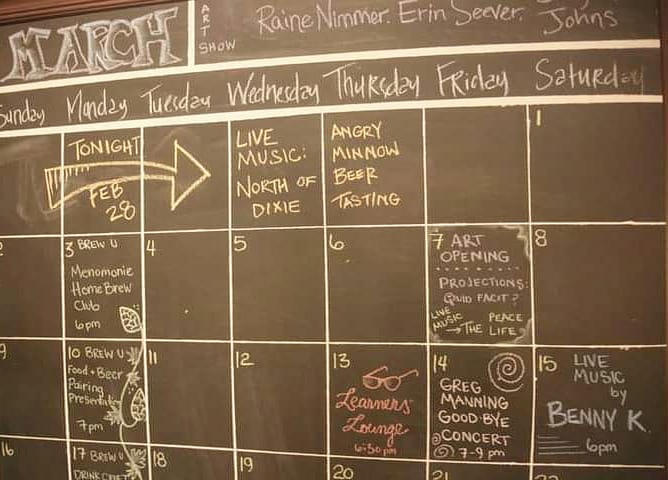 MARCH
ART SHOW
Raine Nimmer. Erin Seever.
Johns
Sunday Monday Tuesday Wednesday Thursday Friday Saturday
TONIGHT
FEB
28
LIVE
MUSIC:
NORTH OF
DIXIE
ANGRY
MINNOW
BEER
TASTING
1
2
3 BREW U
Menomonie
HomeBrew
Club
6pm
4
5
6
7 ART
OPENING
PROJECTIONS:
QUID FACIT?
LIVE
MUSIC
→ PEACE
THE LIFE
8
9
10 BREW U
Food + Beer
Pairing
Presentation
7pm
11
12
13
Learners'
Lounge
6:30 pm
14
GREG
MANNING
GOOD-BYE
CONCERT
7-9 pm
15 LIVE
MUSIC
by
BENNY K.
6pm
16
17 BREW U
DRINK CRAFT
18
19
20
21
22